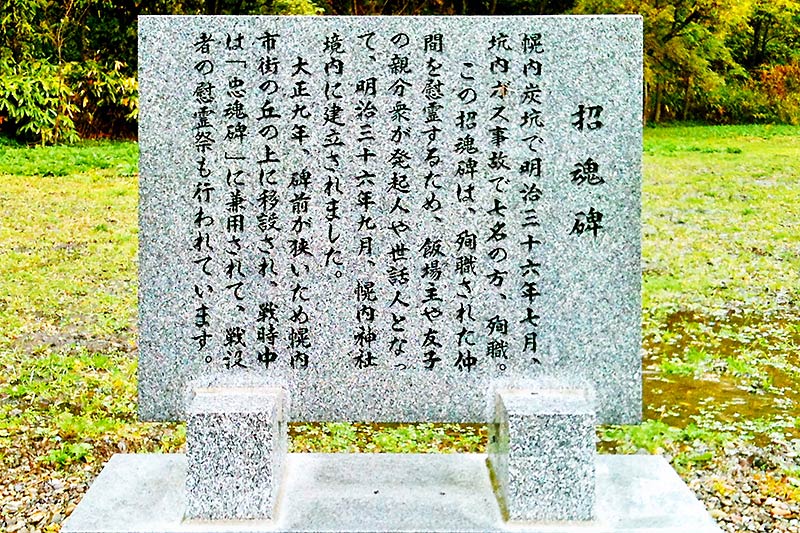 招魂碑
幌内炭坑で明治三十六年七月、
坑内ガス事故で七名の方、殉職。
この招魂碑は、殉職された仲
間を慰霊するため、飯場主や友子
の親分衆が発起人や世話人となっ
て、明治三十六年九月、幌内神社
境内に建立されました。
大正九年、碑前が狭いため幌内
市街の丘の上に移設され、戦時中
は「忠魂碑」に兼用されて、戦没
者の慰霊祭も行われています。